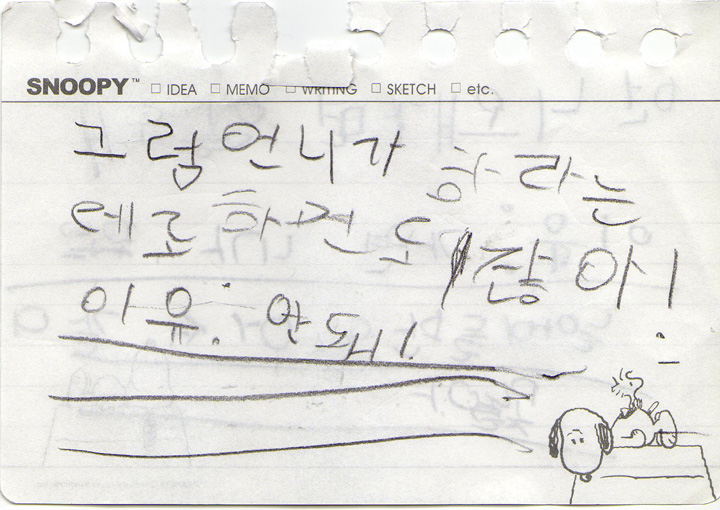 SNOOPY™ □ IDEA □ MEMO □ WRITING □ SKETCH □ etc.
그럼언니가 하라는
데로하면도 괞아!
이유: 안돼!